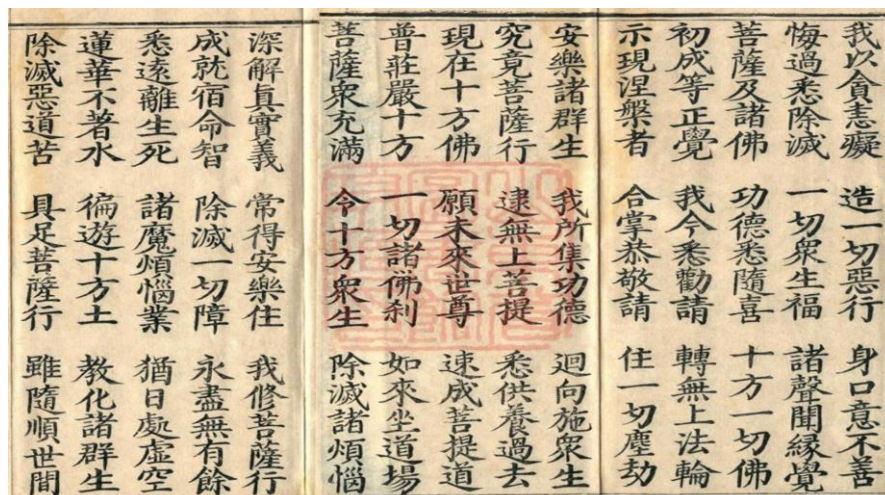 我以貪恚癡 造一切惡行 身口意不善
悔過悉除滅 一切衆生福 諸聲聞緣覺
菩薩及諸佛 功德悉隨喜 十方一切佛
初成等正覺 我今悉勸請 轉無上法輪
示現涅槃者 合掌恭敬請 住一切塵劫
安樂諸群生 我所集功德 迴向施衆生
究竟菩薩行 逮無上菩提 悉供養過去
現在十方佛 願未來世尊 速成菩提道
普莊嚴十方 一切諸佛刹 如來坐道場
菩薩衆充滿 令十方衆生 除滅諸煩惱
深解眞實義 常得安樂住 我修菩薩行
成就宿命智 除滅一切障 永盡無有餘
悉遠離生死 諸魔煩惱業 猶日處虛空
蓮華不著水 徧遊十方土 教化諸群生
除滅惡道苦 具足菩薩行 雖隨順世間